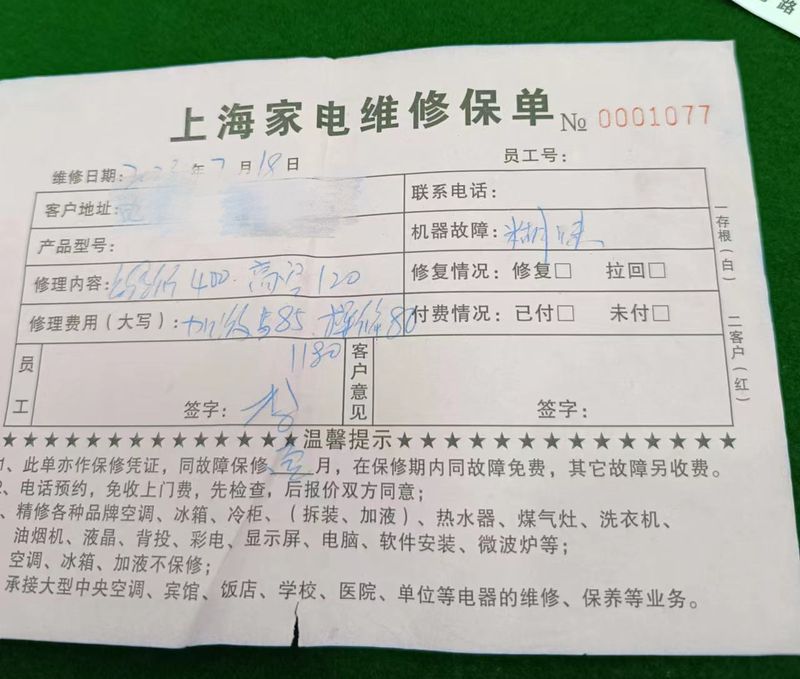 路
上海家电维修保单 № 0001077
维修日期: 年 7 月 18 日 员工号:
客户地址: 联系电话:
产品型号: 机器故障:
修理内容: 400 高 120 修复情况: 修复□ 拉回□
修理费用(大写): 85 80 付费情况: 已付□ 未付□
1180
员工 签字: 客户意见 签字:
一存根(白)
二客户(红)
★★★★★★★★★★★★★★★★温馨提示★★★★★★★★★★★★★★★★★★
1、此单亦作保修凭证，同故障保修 月，在保修期内同故障免费，其它故障另收费。
2、电话预约，免收上门费，先检查，后报价双方同意；
、精修各种品牌空调、冰箱、冷柜、(拆装、加液)、热水器、煤气灶、洗衣机、
油烟机、液晶、背投、彩电、显示屏、电脑、软件安装、微波炉等；
空调、冰箱、加液不保修；
承接大型中央空调、宾馆、饭店、学校、医院、单位等电器的维修、保养等业务。